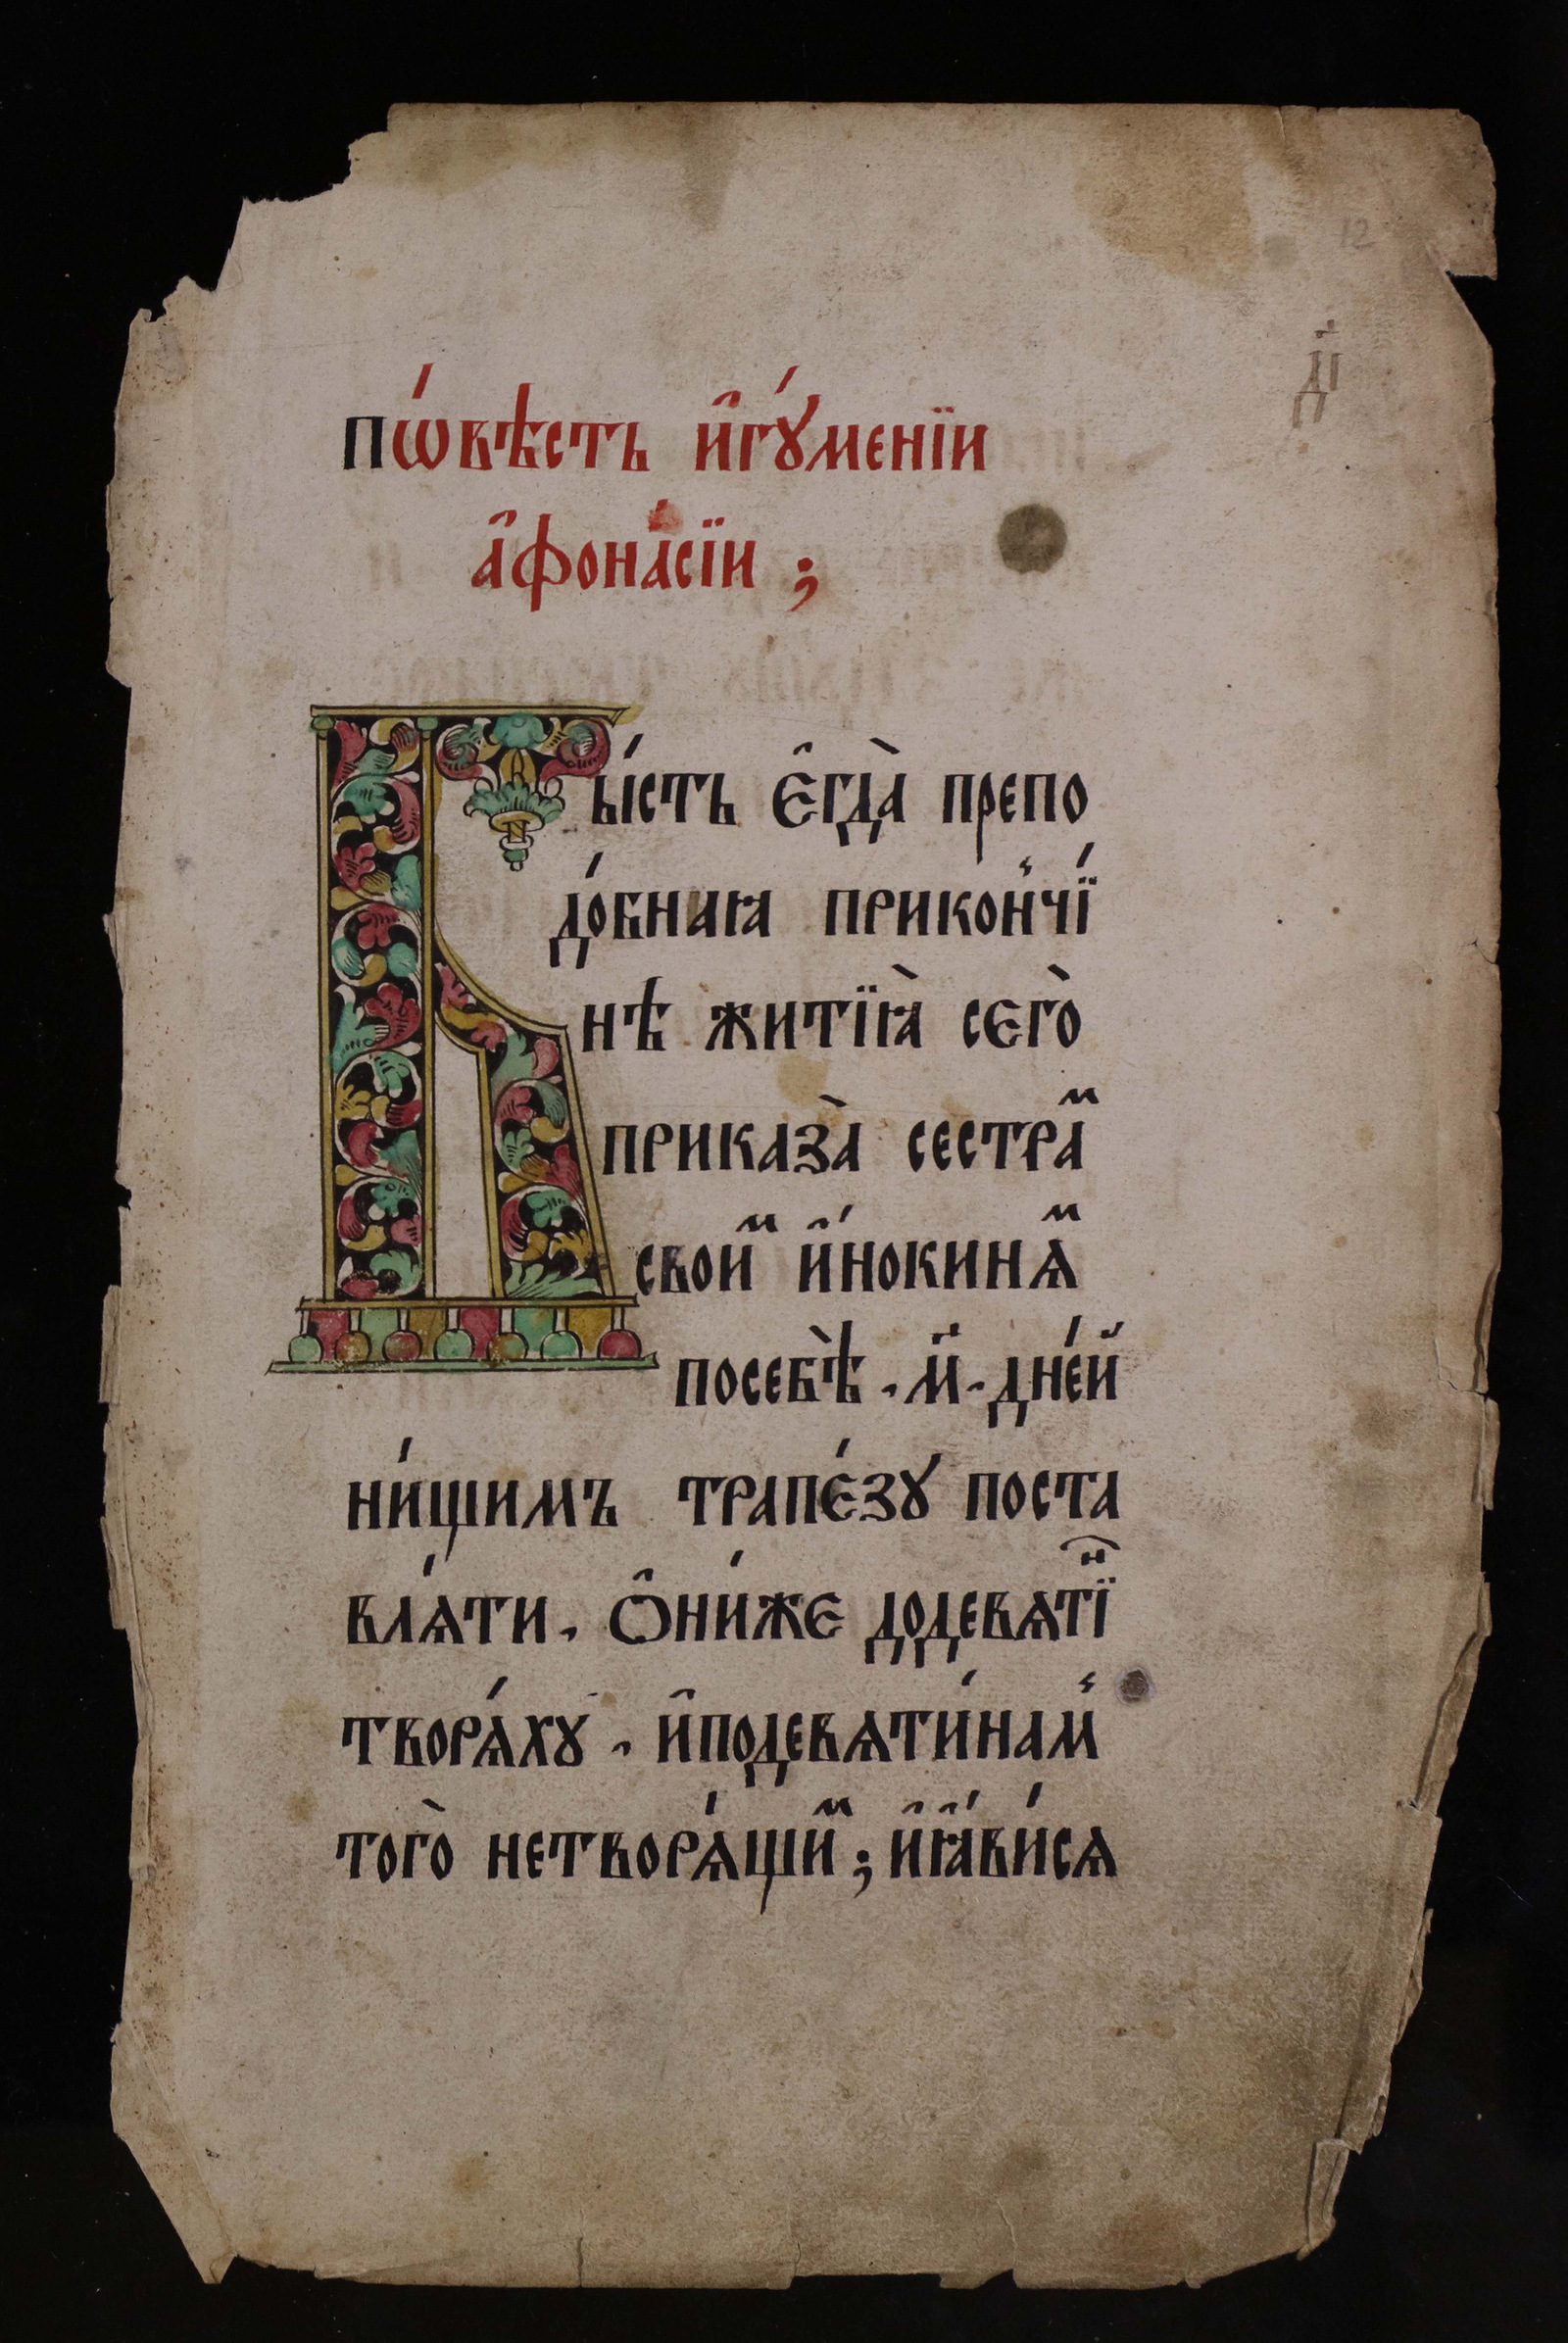 12
д҃і
Пѡ́вѣсть и҆гꙋ́менїи
а҆фона́сїи ;
Бы́сть є҆гда̀ препо
до́бнаꙗ прикон҆чї
нѣ житїꙗ̀ сего̀
приказа̀ сестраⷨ
своиⷨ и҆́нокинѧⷨ
посебѣ̀ . м҃ . дне́й
ни́щимъ трапе́зꙋ поста
влѧ́ти . Ѻ҆ни́же додевѧтїⷩ҇
творѧ́хꙋ . и҆подевѧти́нам
того̀ нетворѧ́щиⷨ ; и҆ꙗ҆ви́сѧ